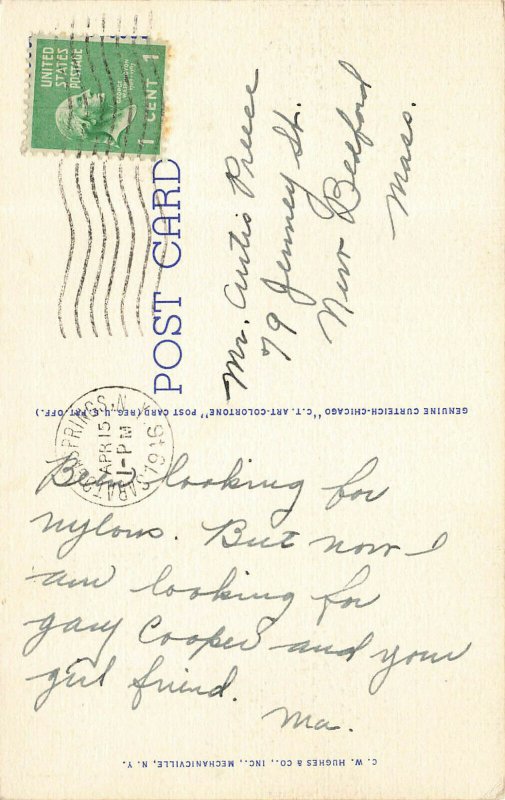 UNITED
STATES
POSTAGE
GEORGE
WASHINGTON
1 CENT 1
POST CARD
SARATOGA SPRINGS, N.Y.
APR 15
1-PM
1946
Mr. Curtis Preece
79 Jenney St.
New Bedford
Mass.
GENUINE CURTEICH-CHICAGO "C.T. ART-COLORTONE" POST CARD (REG. U.S. PAT. OFF.)
Been looking for
nylons. But now I
am looking for
gary Cooper and your
girl friend.
Ma.
C. W. HUGHES & CO., INC., MECHANICVILLE, N. Y.